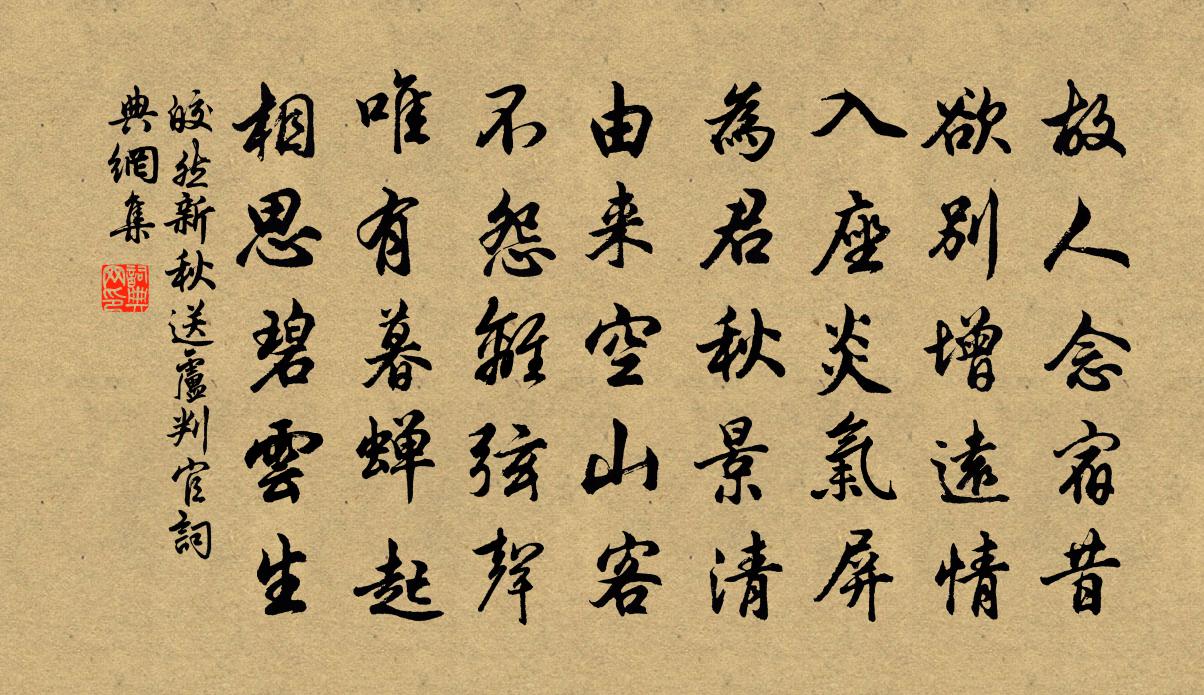 故人念宿昔
欲別增遠情
入座炎氣屏
為君秋景清
由来空山客
不怨離弦聲
唯有暮蝉起
相思碧雲生
皎然新秋送盧判官詞
典網集
詞典网印